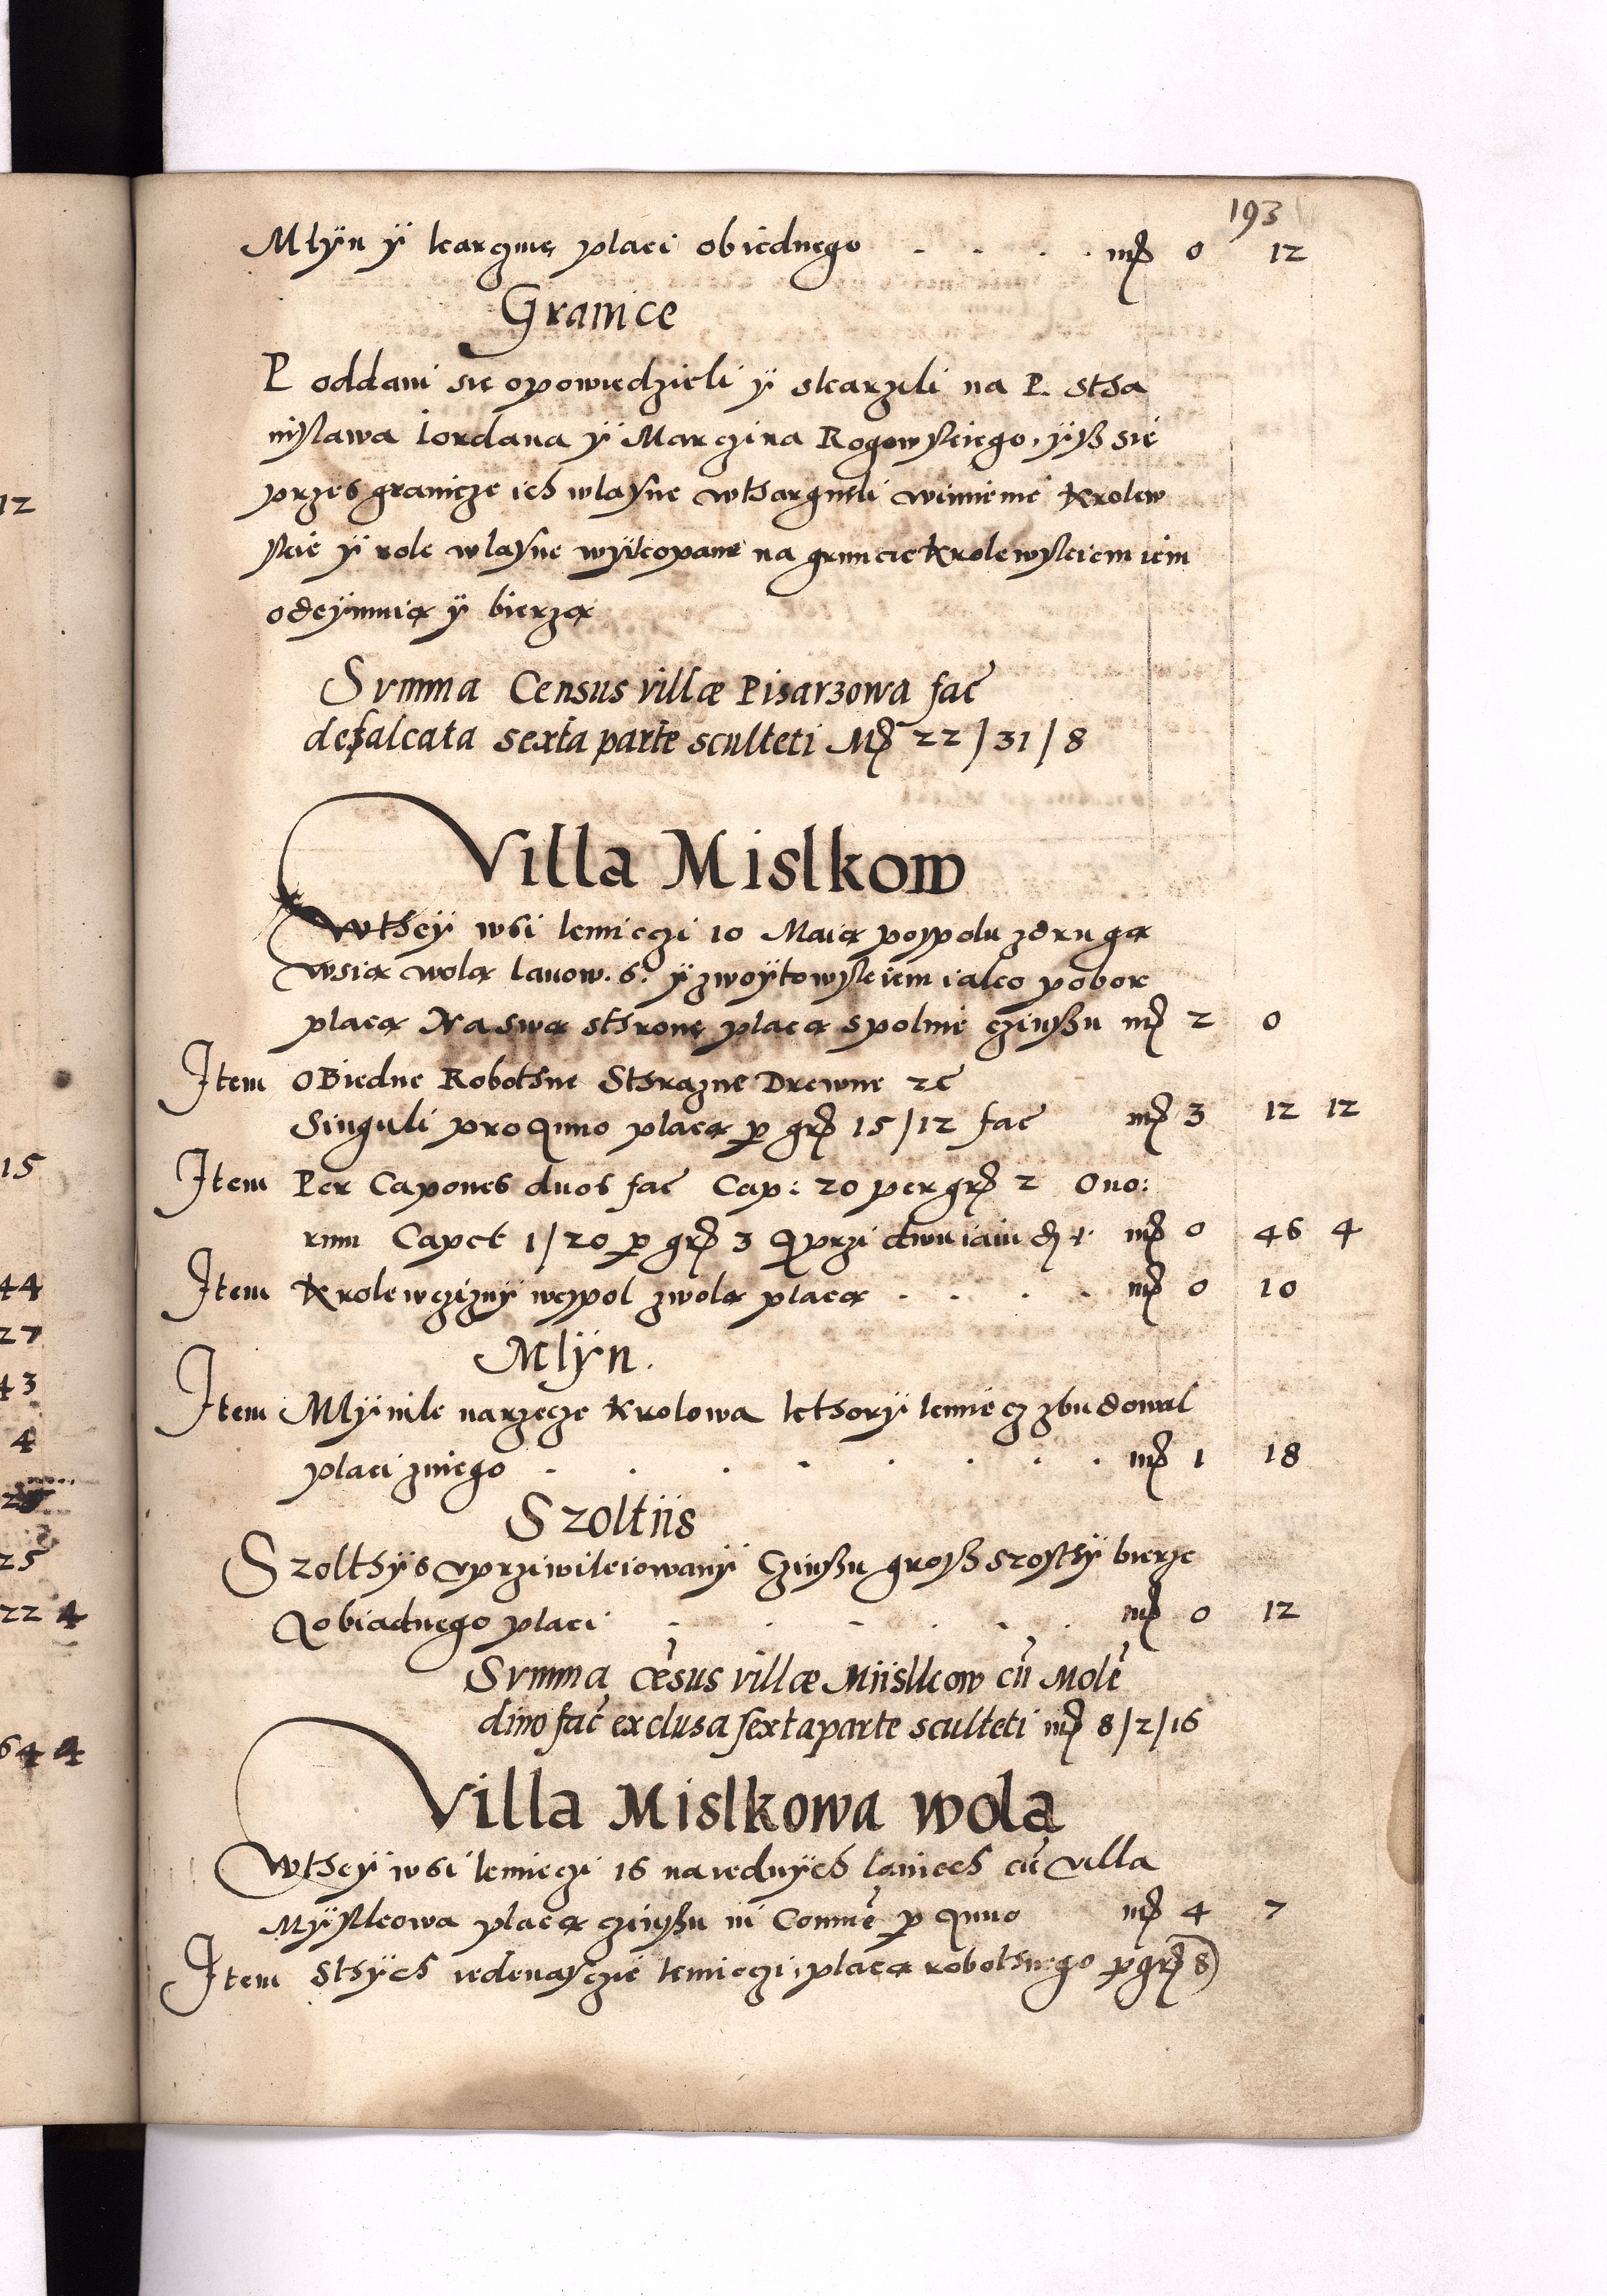 193
Młÿn ÿ karczmę płaci obiednego . . . . mr͡ 0 12
Granice
Poddani się opowiedzieli ÿ skarzeli na P. Stha
nisława Iordana ÿ Marczina Rogowskiego, ÿß się
przes granicze ich własne wthargneli w imienie krolew
skie ÿ role własne wÿkopane na gruncie krolewskiem iem
odeÿmuią ÿ bierzą
Summa Census villæ Pisarzowa fac̄
defalcata sexta parte sculteti Mr͡ 22/31/8
Villa Mislkow
Wtheÿ wsi kmieczi 10 Maią pospolu zdrugą
wsią wolą lanow. 6. ÿ zwoÿtowskiem iako pobor
płacą Na swą sthronę płacą spolnie czinßu mr͡ 2 0
Item Obiedne Robothne Sthrazne Drewne ꝛc̄
Singuli pro Anno płacą ꝑ gr͡ 15/12 fac̄ mr͡ 3 12 12
Item Per Capones duos fac̄ Cap: 20 per gr͡ 2 Ouo:
rum Capet 1/20 ꝑ gr͡ 3 Aprzi dwu iaiu mr͡ 0 46 4
Item Krolewcziznÿ wespol zwolą płacą . . . . mr͡ 0 10
Mlÿn.
Item Mlÿnik narzecze Krolowa kthorÿ kmiecz zbudowal
płaci zniego . . . . . . . . mr͡ 1 18
Szoltiis
Szolthÿs vprziwileiowanÿ Czinßu groß szosthÿ bierze
Aobiadnego płaci . . . . . . mr͡ 0 12
Summa Cēsus villæ Miislkow cū Molē
dino fac̄ exclusa sexta parte sculteti mr͡ 8/2/16
Villa Mislkowa wola
Wtheÿ wsi kmieczi 16 na iednÿch laniech cū villa
Mÿslkowa płacą czinßu in Commē ꝑ Anno mr͡ 4 7
Item Sthÿch iedenasczie kmieczi, płacą robothnego ꝑ gr͡ 8